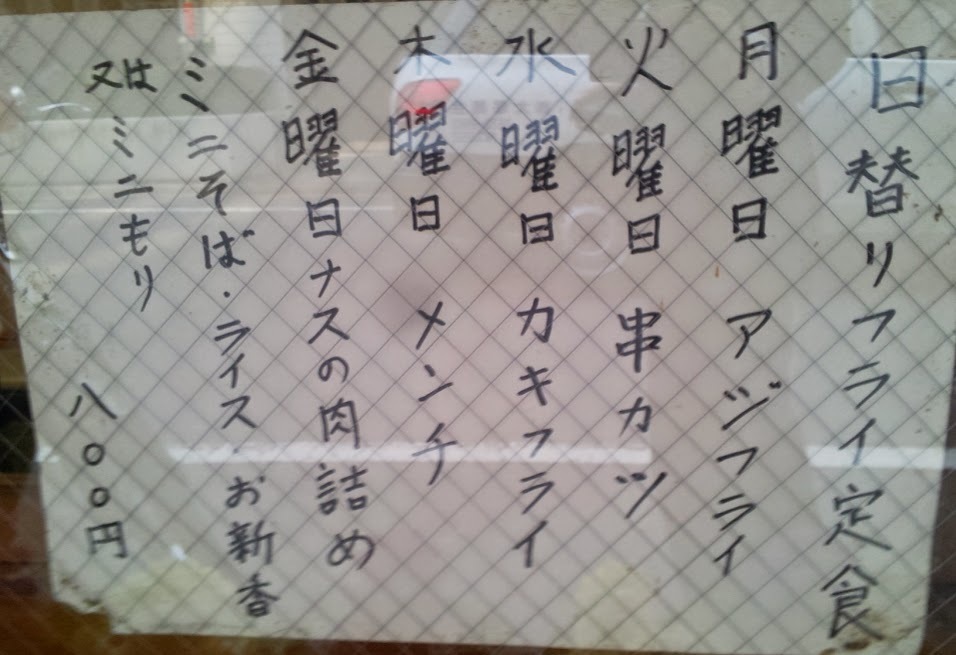 日替リフライ定食
月曜日 アジフライ
火曜日 串カツ
水曜日 カキフライ
木曜日 メンチ
金曜日 ナスの肉詰め
ミニそば・ライス・お新香
又はミニもり 八〇〇円